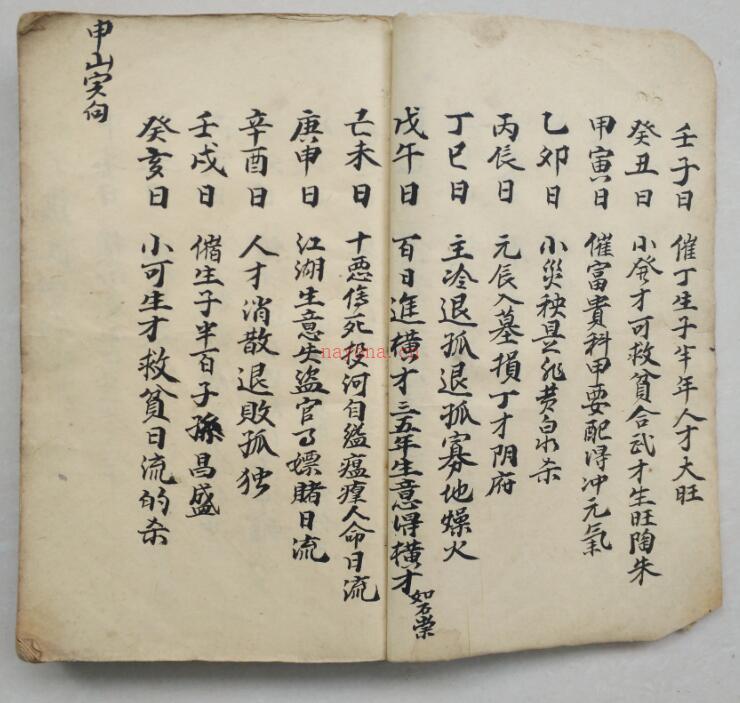 壬子日 催丁生子半年人才大旺
癸丑日 小發才可救貧合武才生旺陶朱
甲寅日 催富貴科甲要配得冲元氣
乙卯日 小災殃是非黄泉杀
丙辰日 元辰入墓損丁才阴府
丁巳日 主冷退孤退孤寡地燥火
戊午日 百日進横才三五年生意得横才
己未日 十悪 死投河自缢瘟瘴人命日流
庚申日 江湖生意失盗官 嫖賭日流
辛酉日 人才消散退敗孤独
壬戌日 生子半百子孫昌盛
癸亥日 小可生才救貧日流的杀
申山寅向